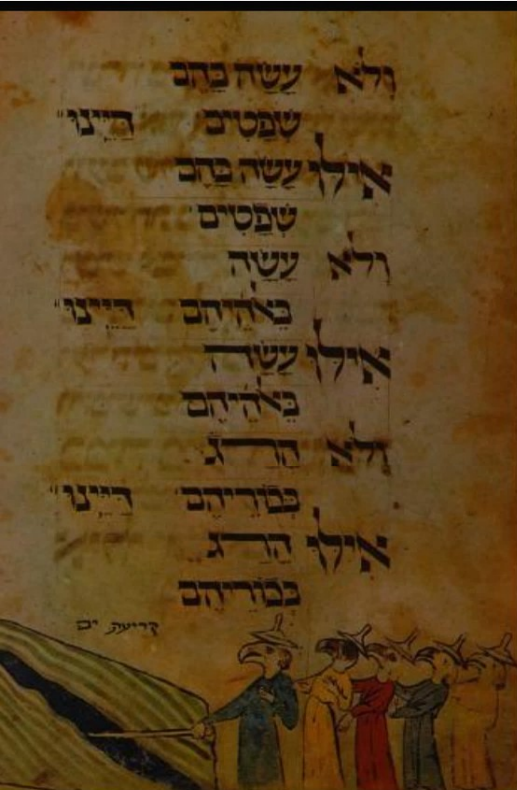 וְלֹא עָשָׂה בָהֶם
שְׁפָטִים דַּיֵּינוּ
אִילוּ עָשָׂה בָהֶם
שְׁפָטִים
וְלֹא עָשָׂה
בֵאלֹהֵיהֶם דַּיֵּינוּ
אִילוּ עָשָׂה
בֵאלֹהֵיהֶם
וְלֹא הָרַג
בְּכוֹרֵיהֶם דַּיֵּינוּ
אִילוּ הָרַג
בְּכוֹרֵיהֶם
קריעת ים